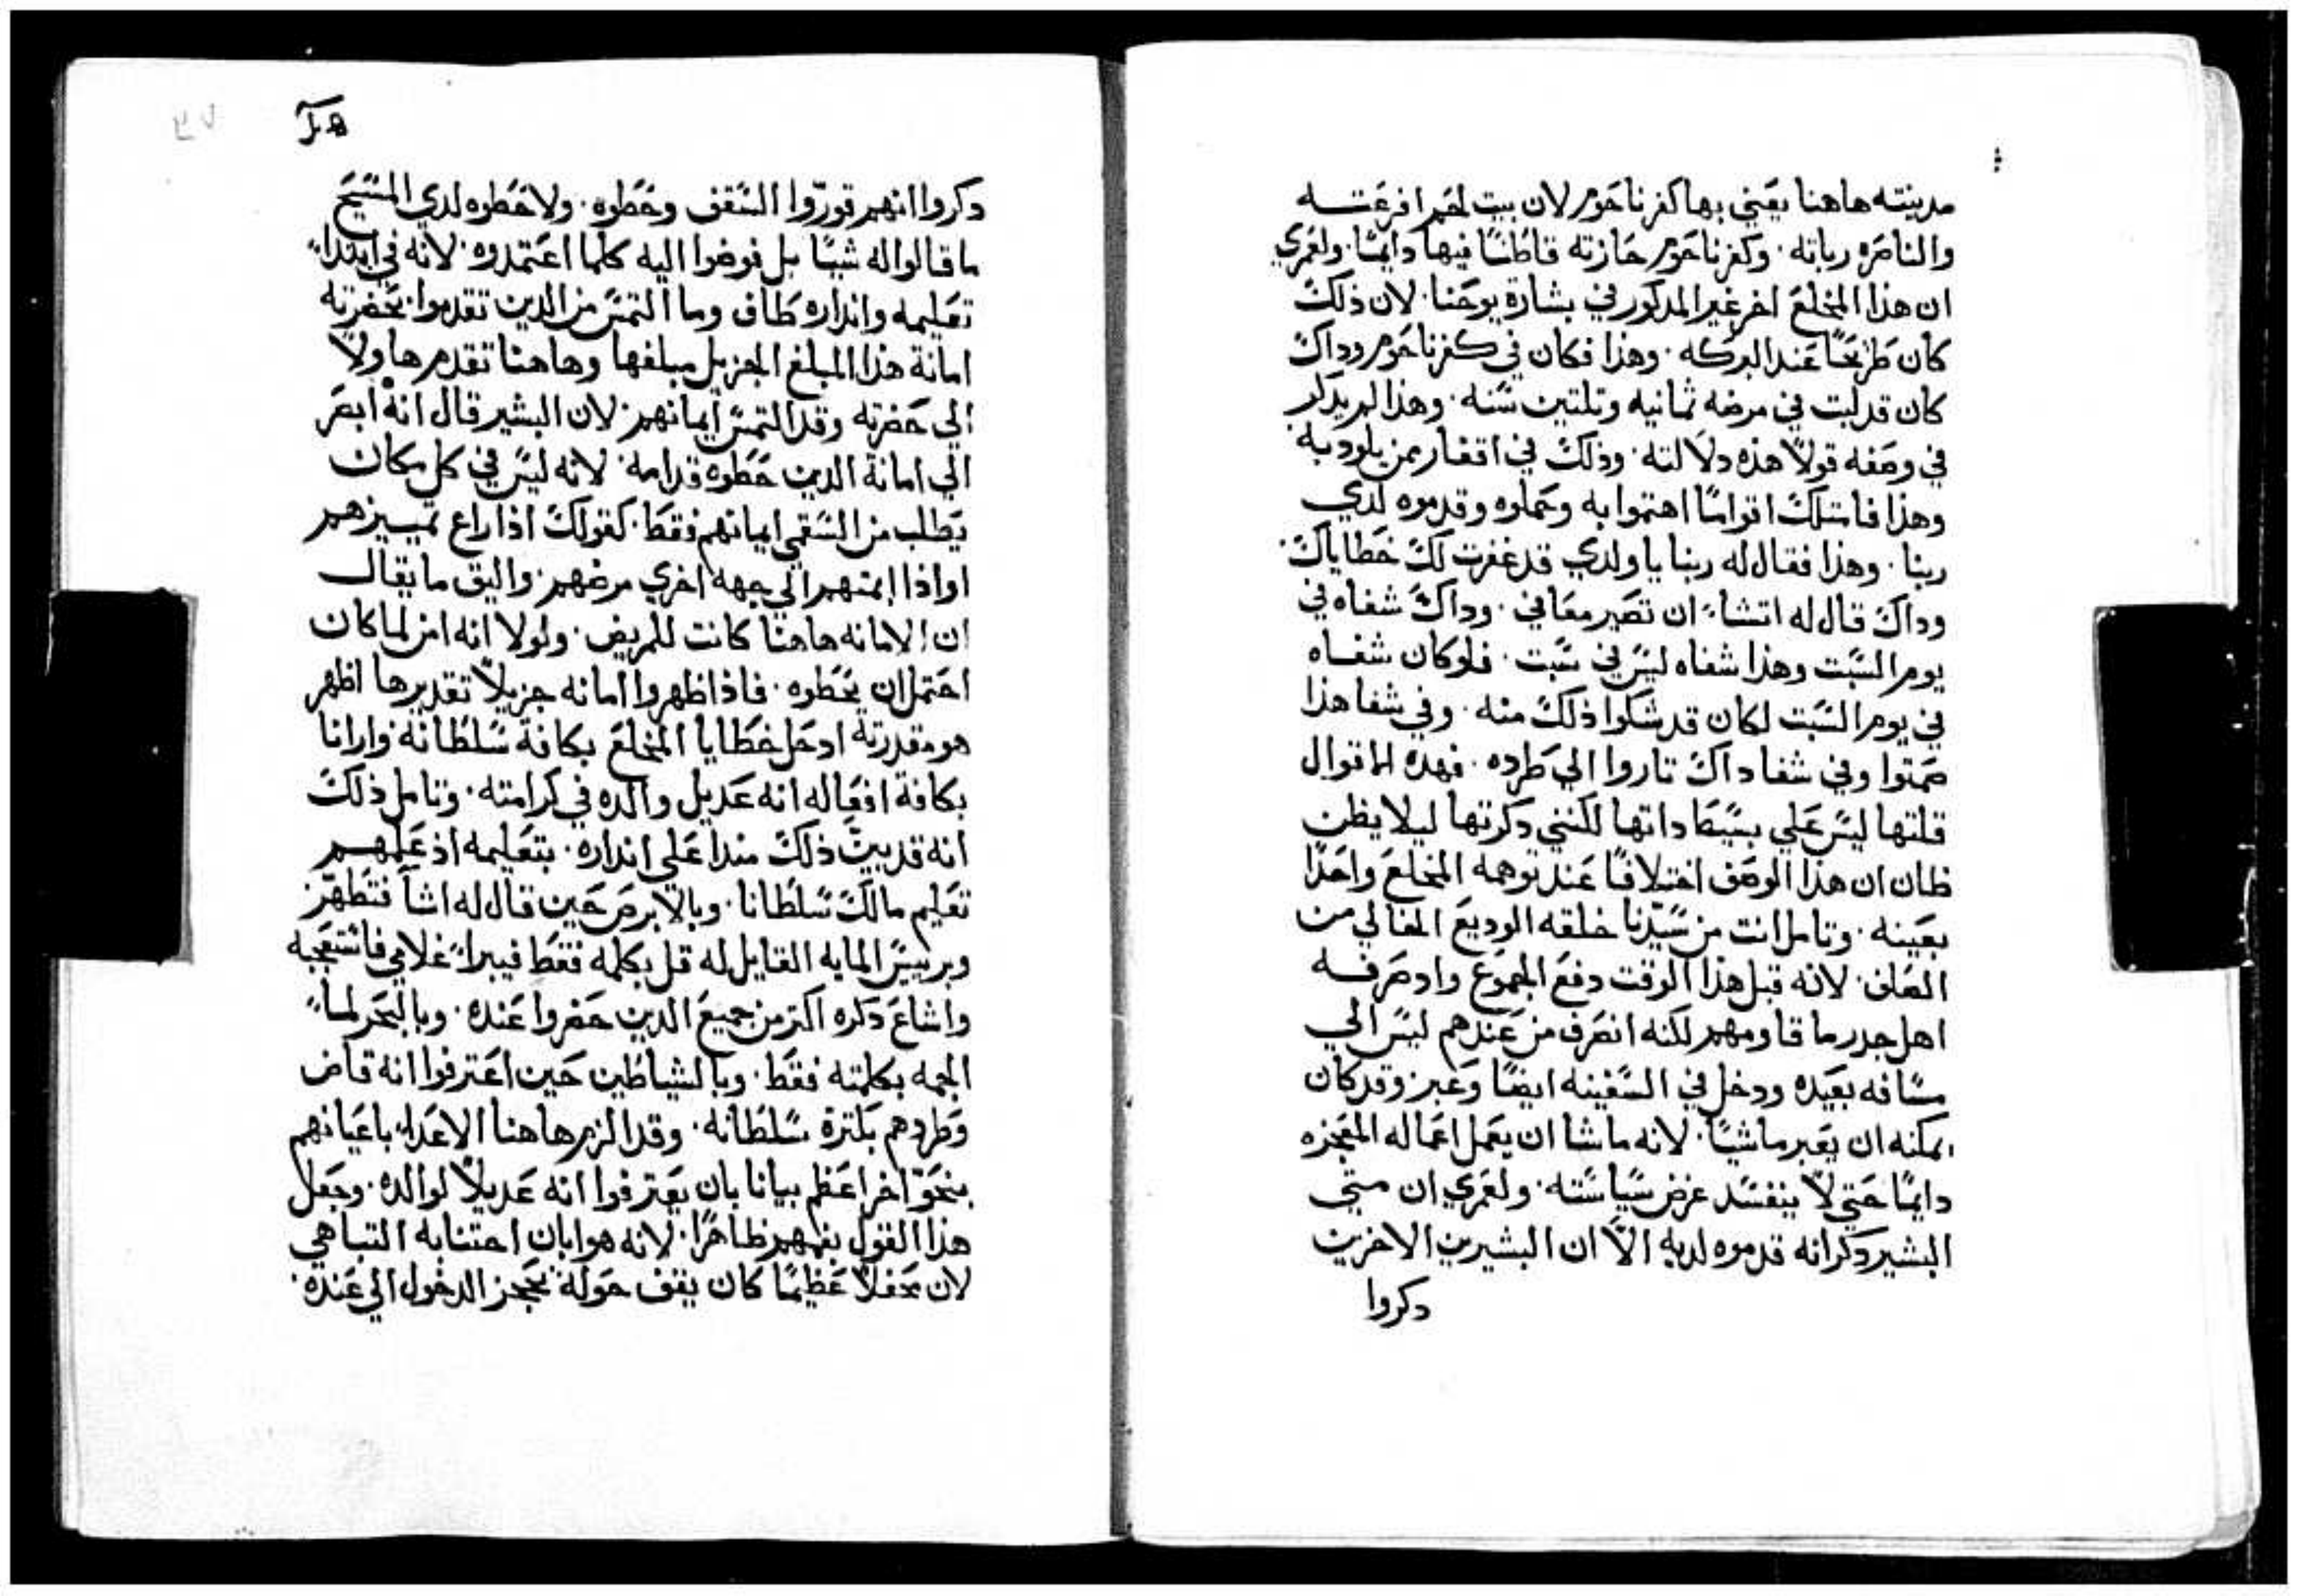 مدينته هاهنا يعني بها كفرناحوم لان بيت لحم افرعته
والناصره رباته. وكفرناحوم حازته قاطنًا فيها دايمًا. ولعمري
ان هذا المخلع اخر غير المدكور في بشارة يوحنا. لان ذلك
كان طريحًا عند البركه. وهذا فكان في كفرناحوم وداك
كان قد لبت في مرضه ثمانيه وتلتين سنه. وهذا لم يدكر
في وصفه قولاً هذه دلالته. وذلك في اقفار ممن يلود به
وهذا فامتلك اقوامًا اهتموا به وحملوه وقدموه لدي
ربنا. وهذا فقال له ربنا يا ولدي قد غفرت لك خطاياك.
وداك قال له اتشاء ان تصير معافي. وداك شفاه في
يوم السبت وهذا شفاه ليس في سبت. فلو كان شفاه
في يوم السبت لكان قد شكوا ذلك منه. وفي شفا هذا
صمتوا وفي شفا داك تاروا الي طرده. فهده الاقوال
قلتها ليس علي بسيط داتها لكنني دكرتها ليلا يظن
ظان ان هذا الوصف اختلافًا عند توهمه المخلع واحدًا
بعينه. وتامل انت من سيدنا خلقه الوديع الخالي من
الصلف. لانه قبل هذا الوقت دفع الجموع واد صرفه
اهل جدر ما قاومهم لكنه انصرف من عندهم ليس الي
مسافه بعيده ودخل في السفينه ايضًا وعبر وقد كان
يمكنه ان يعبر ماشيًا. لانه ما شا ان يعمل اعماله المعجزه
دايمًا حتي لا ينفسد غرض سياسته. ولعمري ان متي
البشير دكر انه قدموه لديه الاّ ان البشيرين الاخرين
دكروا
دكروا انهم قوروا السقف وحطوه. ولا حطوه لدي المسيح
ما قالوا له شيًا بل فوضوا اليه كلما اعتمدوه. لانه في ابتداء
تعليمه وانداره طاف وما التمس من الدين تقدموا بحضرته
امانة هذا المبلغ الجزيل مبلغها وهاهنا تقدم هاولاً
الي حضرته وقد التمس ايمانهم. لان البشير قال انه ابصر
الي امانة الدين حطوه قدامه. لانه ليس في كل مكان
يطلب من السقمي ايمانهم فقط. كقولك اذا راع تمييزهم
او اذا امتهم الي جهه اخري مرضهم. واليق ما يقال
ان الامانه هاهنا كانت للمريض. ولولا انه امن لما كان
احتمل ان يحطوه. فاذ اظهروا امانه جزيلاً تقديرها اظهر
هو مقدرته اد حل خطايا المخلع بكافة سلطانه وارانا
بكافة افعاله انه عديل والده في كرامته. وتامل ذلك
انه قد بين ذلك مند اعلي انداره. بتعليمه اذ علمهم
تعليم مالك سلطانا. وبالابرص حين قال له اشا فتطهر
وبرييس المايه القايل له قل بكلمه فقط فيبراء غلامي فاستعجبه
واشاع دكره اكتر من جميع الدين حضروا عنده. وبالبحر لماء
الجمه بكلمته فقط. وبالشياطين حين اعترفوا انه قاض
وطردهم بكترة سلطانه. وقد الزم هاهنا الاعداء باعيانهم
بنحو اخر اعظم بيانا بان يعترفوا انه عديلاً لوالده. وجعل
هذا القول بفمهم ظاهرًا. لانه هو ابان اجتنابه التباهي
لان محفلاً عظيمًا كان يقف حوله يحجز الدخول الي عنده.